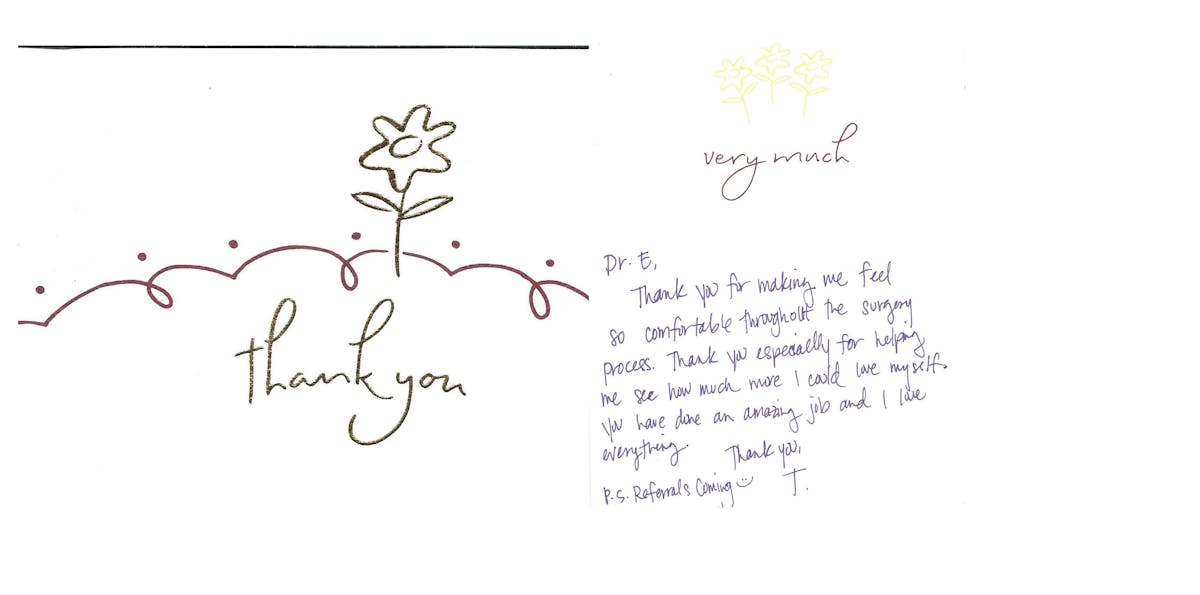 thank you
very much
Dr. E,
Thank you for making me feel
so comfortable throughout the surgery
process. Thank you especially for helping
me see how much more I could love myself.
You have done an amazing job and I love
everything.
Thank you,
P.S. Referrals Coming
T.